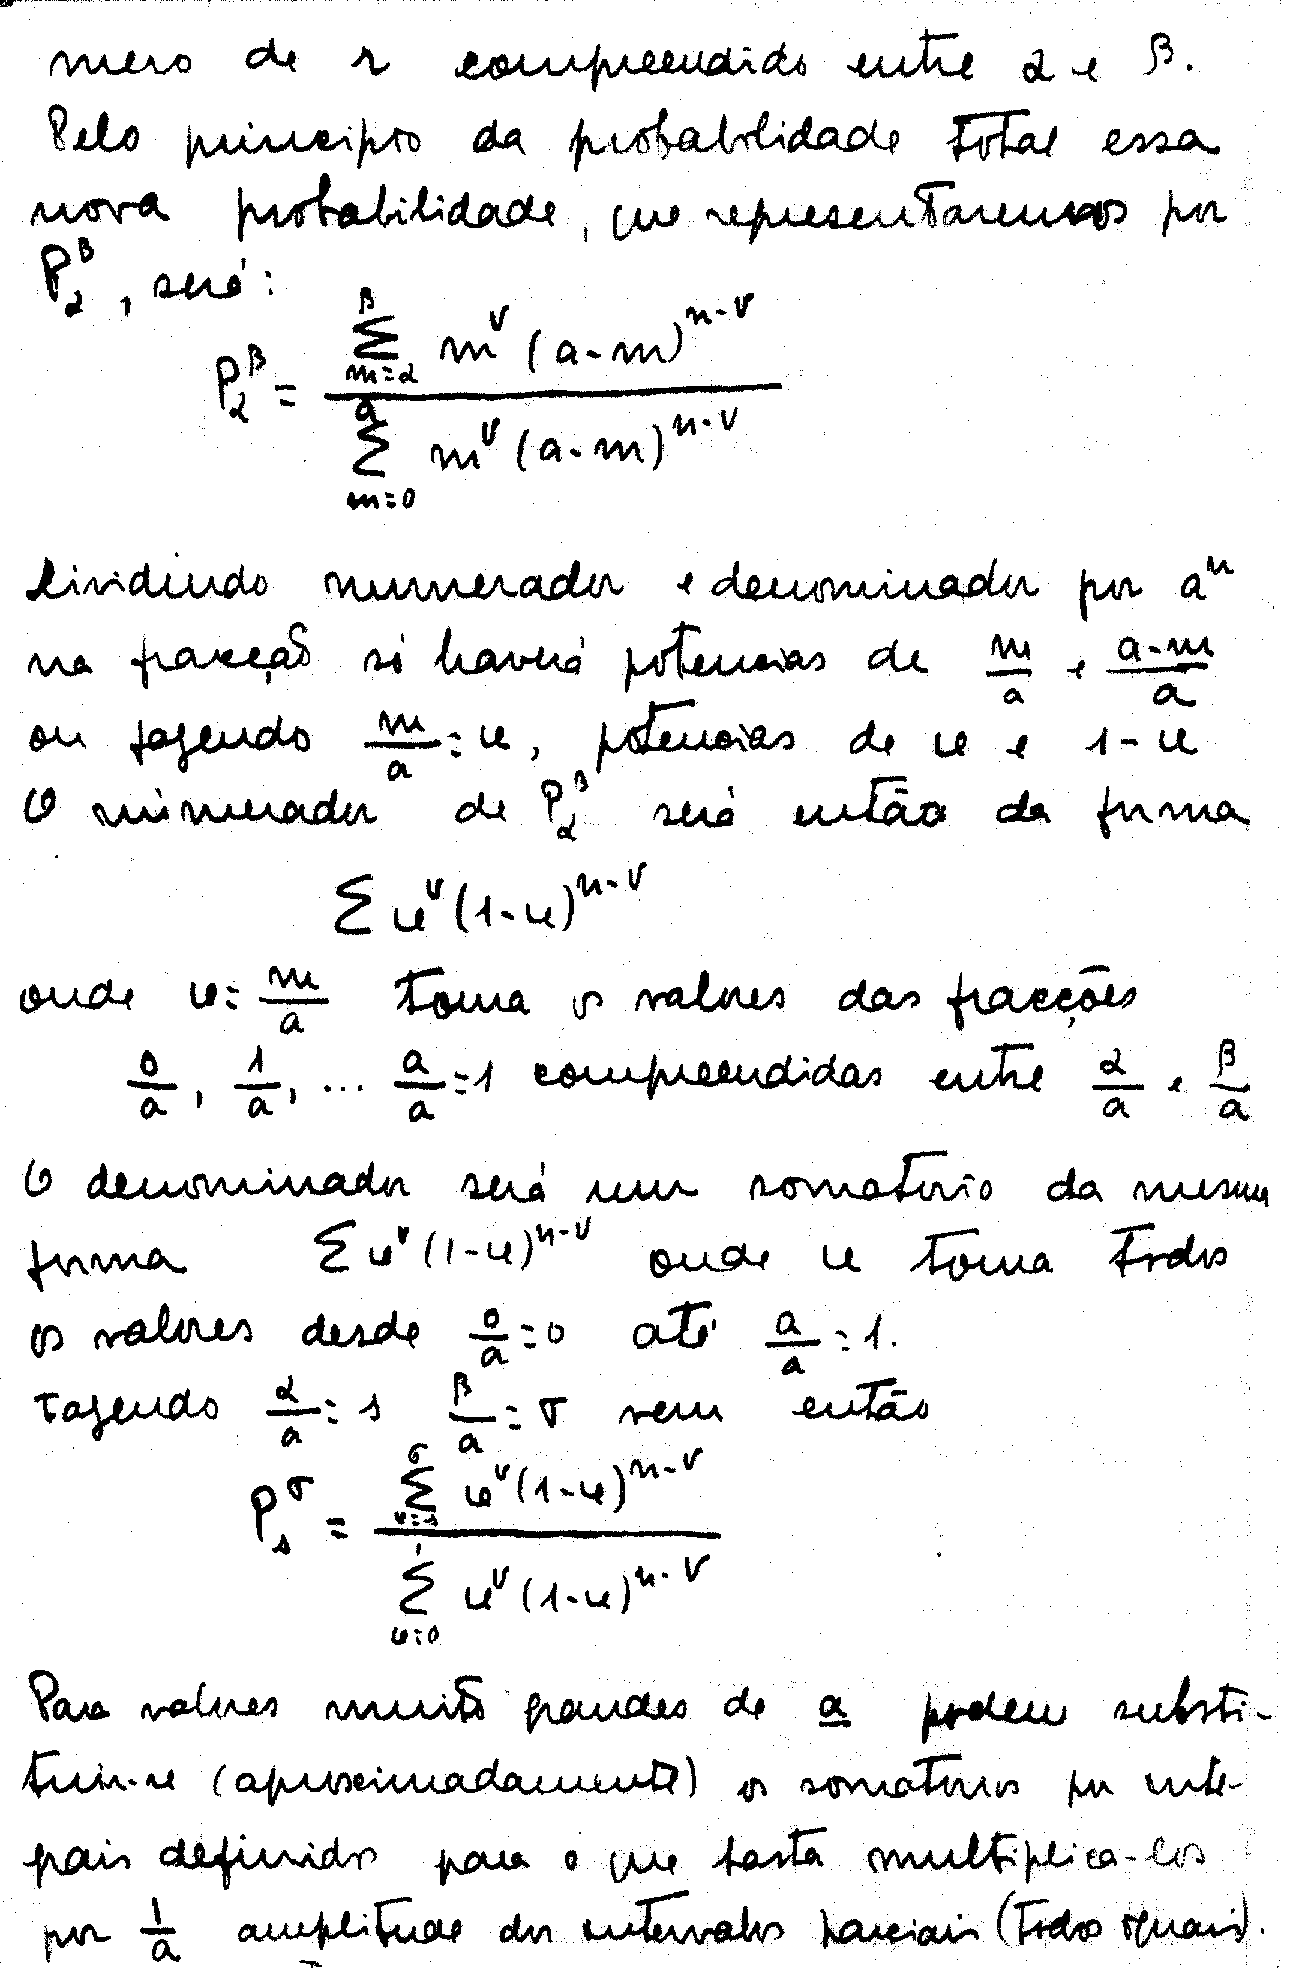 mero de r compreendido entre α e β.
Pelo principio da probabilidade total essa
nova probabilidade, que representaremos por
P_α^β, será:
P_α^β = \frac{\sum_{m=α}^{β} m^ν (a-m)^{n-ν}}{\sum_{m=0}^{a} m^ν (a-m)^{n-ν}}
Dividindo numerador e denominador por a^n
na fracção só haverá potencias de \frac{m}{a} e \frac{a-m}{a}
ou fazendo \frac{m}{a} = u, potencias de u e 1-u
O numerador de P_α^β será então da forma
\sum u^ν (1-u)^{n-ν}
onde u = \frac{m}{a} toma os valores das fracções
\frac{0}{a}, \frac{1}{a}, ... \frac{a}{a} = 1 compreendidas entre \frac{α}{a} e \frac{β}{a}
O denominador será um somatorio da mesma
forma \sum u^ν (1-u)^{n-ν} onde u toma todos
os valores desde \frac{0}{a} = 0 até \frac{a}{a} = 1.
Fazendo \frac{α}{a} = s \frac{β}{a} = σ vem então
P_s^σ = \frac{\sum_{u=s}^{σ} u^ν (1-u)^{n-ν}}{\sum_{u=0}^{1} u^ν (1-u)^{n-ν}}
Para valores muito grandes de a podem substi-
tuir-se (aproximadamente) os somatorios por inte-
grais definidos para o que basta multiplica-los
por \frac{1}{a} amplitude dos intervalos parciais (todos iguais).